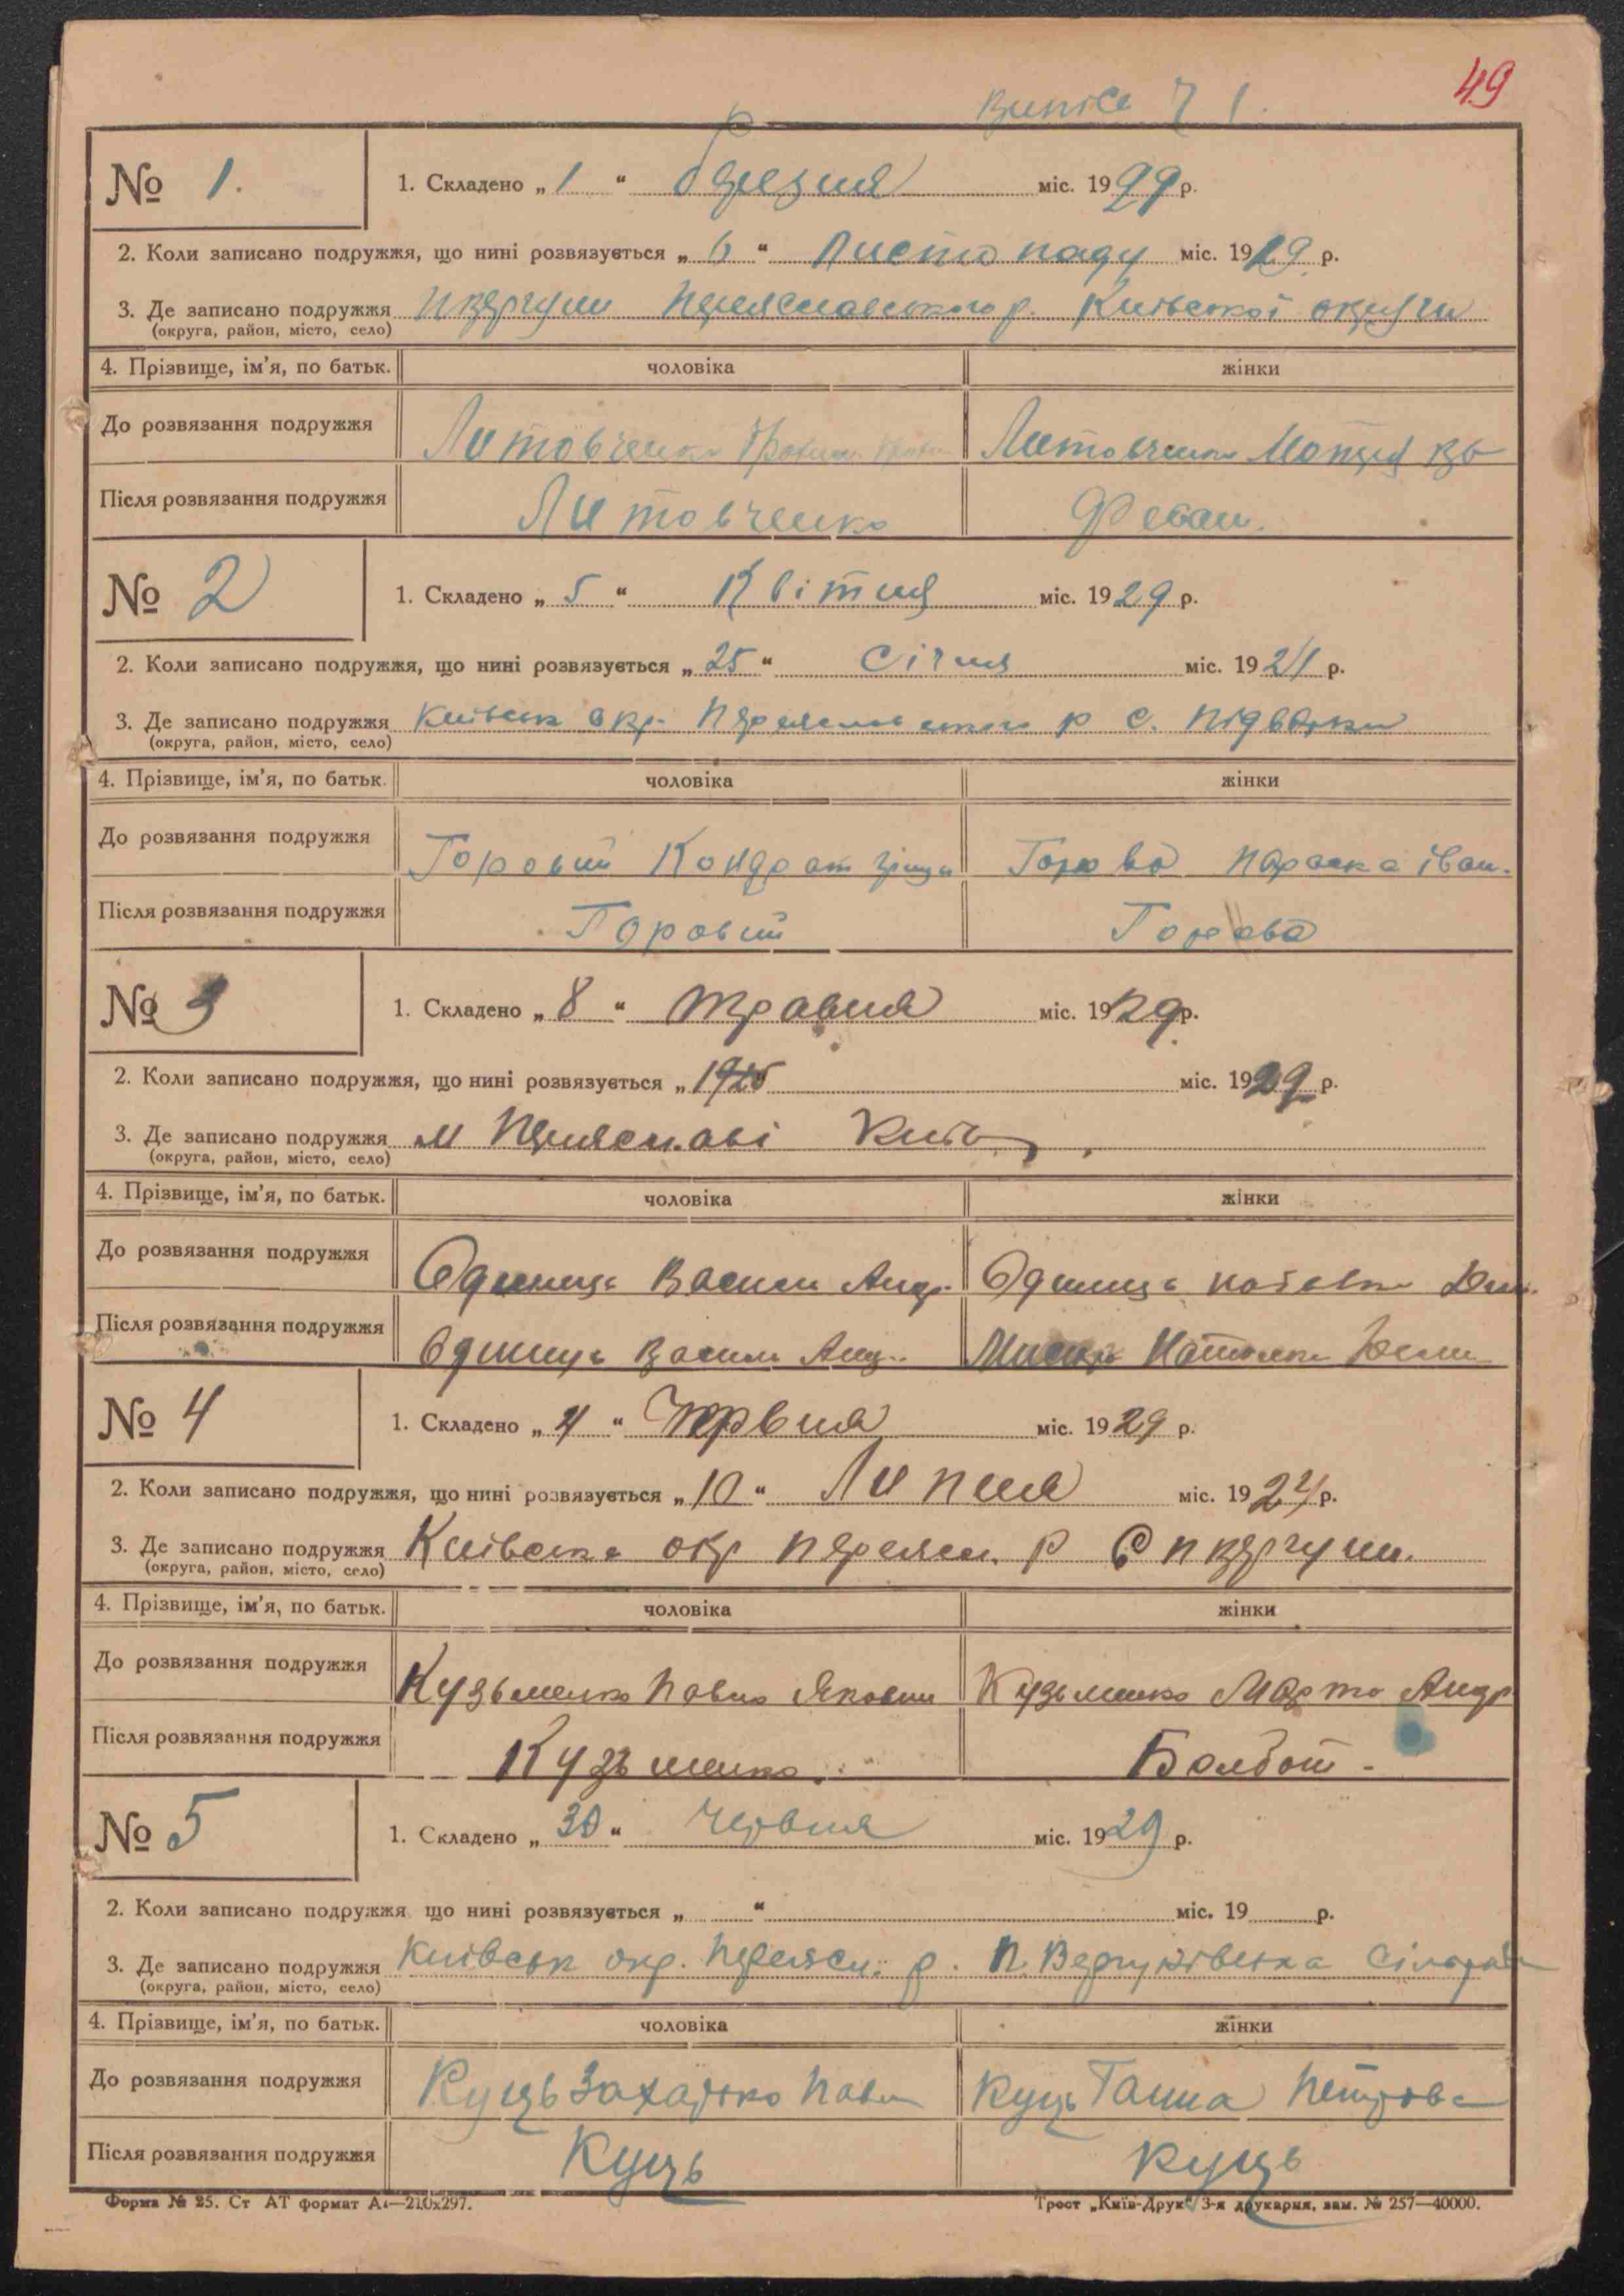 49
№ 1.
1. Складено „ 1 “ березня міс. 1929 р.
2. Коли записано подружжя, що нині розвязується „ 6 “ Листопаду міс. 1919 р.
3. Де записано подружжя Переяславського р. Київської округи
(округа, район, місто, село)
4. Прізвище, ім’я, по батьк. чоловіка жінки
До розвязання подружжя Литовченко Литовченко Мотря
Після розвязання подружжя Литовченко
№ 2
1. Складено „ 5 “ Квітня міс. 1929 р.
2. Коли записано подружжя, що нині розвязується „ 25 “ Січня міс. 1921 р.
3. Де записано подружжя Київськ окр. Переяславського р с. Підварки
(округа, район, місто, село)
4. Прізвище, ім’я, по батьк. чоловіка жінки
До розвязання подружжя Горовий Кондрат Горова Параска Іван.
Після розвязання подружжя Горовий Горова
№ 3
1. Складено „ 8 “ травня міс. 1929 р.
2. Коли записано подружжя, що нині розвязується „ 1925 міс. 1929 р.
3. Де записано подружжя м Переяславі Київ
(округа, район, місто, село)
4. Прізвище, ім’я, по батьк. чоловіка жінки
До розвязання подружжя Одинець Василь Андр. Одинець
Після розвязання подружжя Одинець Василь Анд.. Наталка
№ 4
1. Складено „ 4 “ Червня міс. 1929 р.
2. Коли записано подружжя, що нині розвязується „ 10 “ Липня міс. 1924 р.
3. Де записано подружжя Київська окр переясл. р С
(округа, район, місто, село)
4. Прізвище, ім’я, по батьк. чоловіка жінки
До розвязання подружжя Кузьменко Павло Якович Кузьменко Марта Андр
Після розвязання подружжя Кузьменко. Болбот -
№ 5
1. Складено „ 30 “ Червня міс. 1929 р.
2. Коли записано подружжя що нині розвязується „ “ міс. 19 р.
3. Де записано подружжя Київськ окр. Переясл. р. Сільрада
(округа, район, місто, село)
4. Прізвище, ім’я, по батьк. чоловіка жінки
До розвязання подружжя Куць Захарко Павл Куць Ганна Петрова
Після розвязання подружжя Куць Куць
Форма № 25. Ст АТ формат А4—210х297. Трест „Київ-Друк“ 3-я друкарня, зам. № 257—40000.